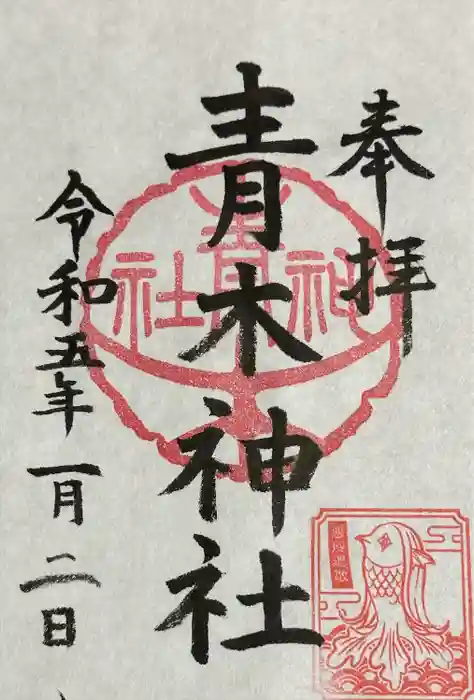 奉拝
青木神社
令和五年一月二日
神
社